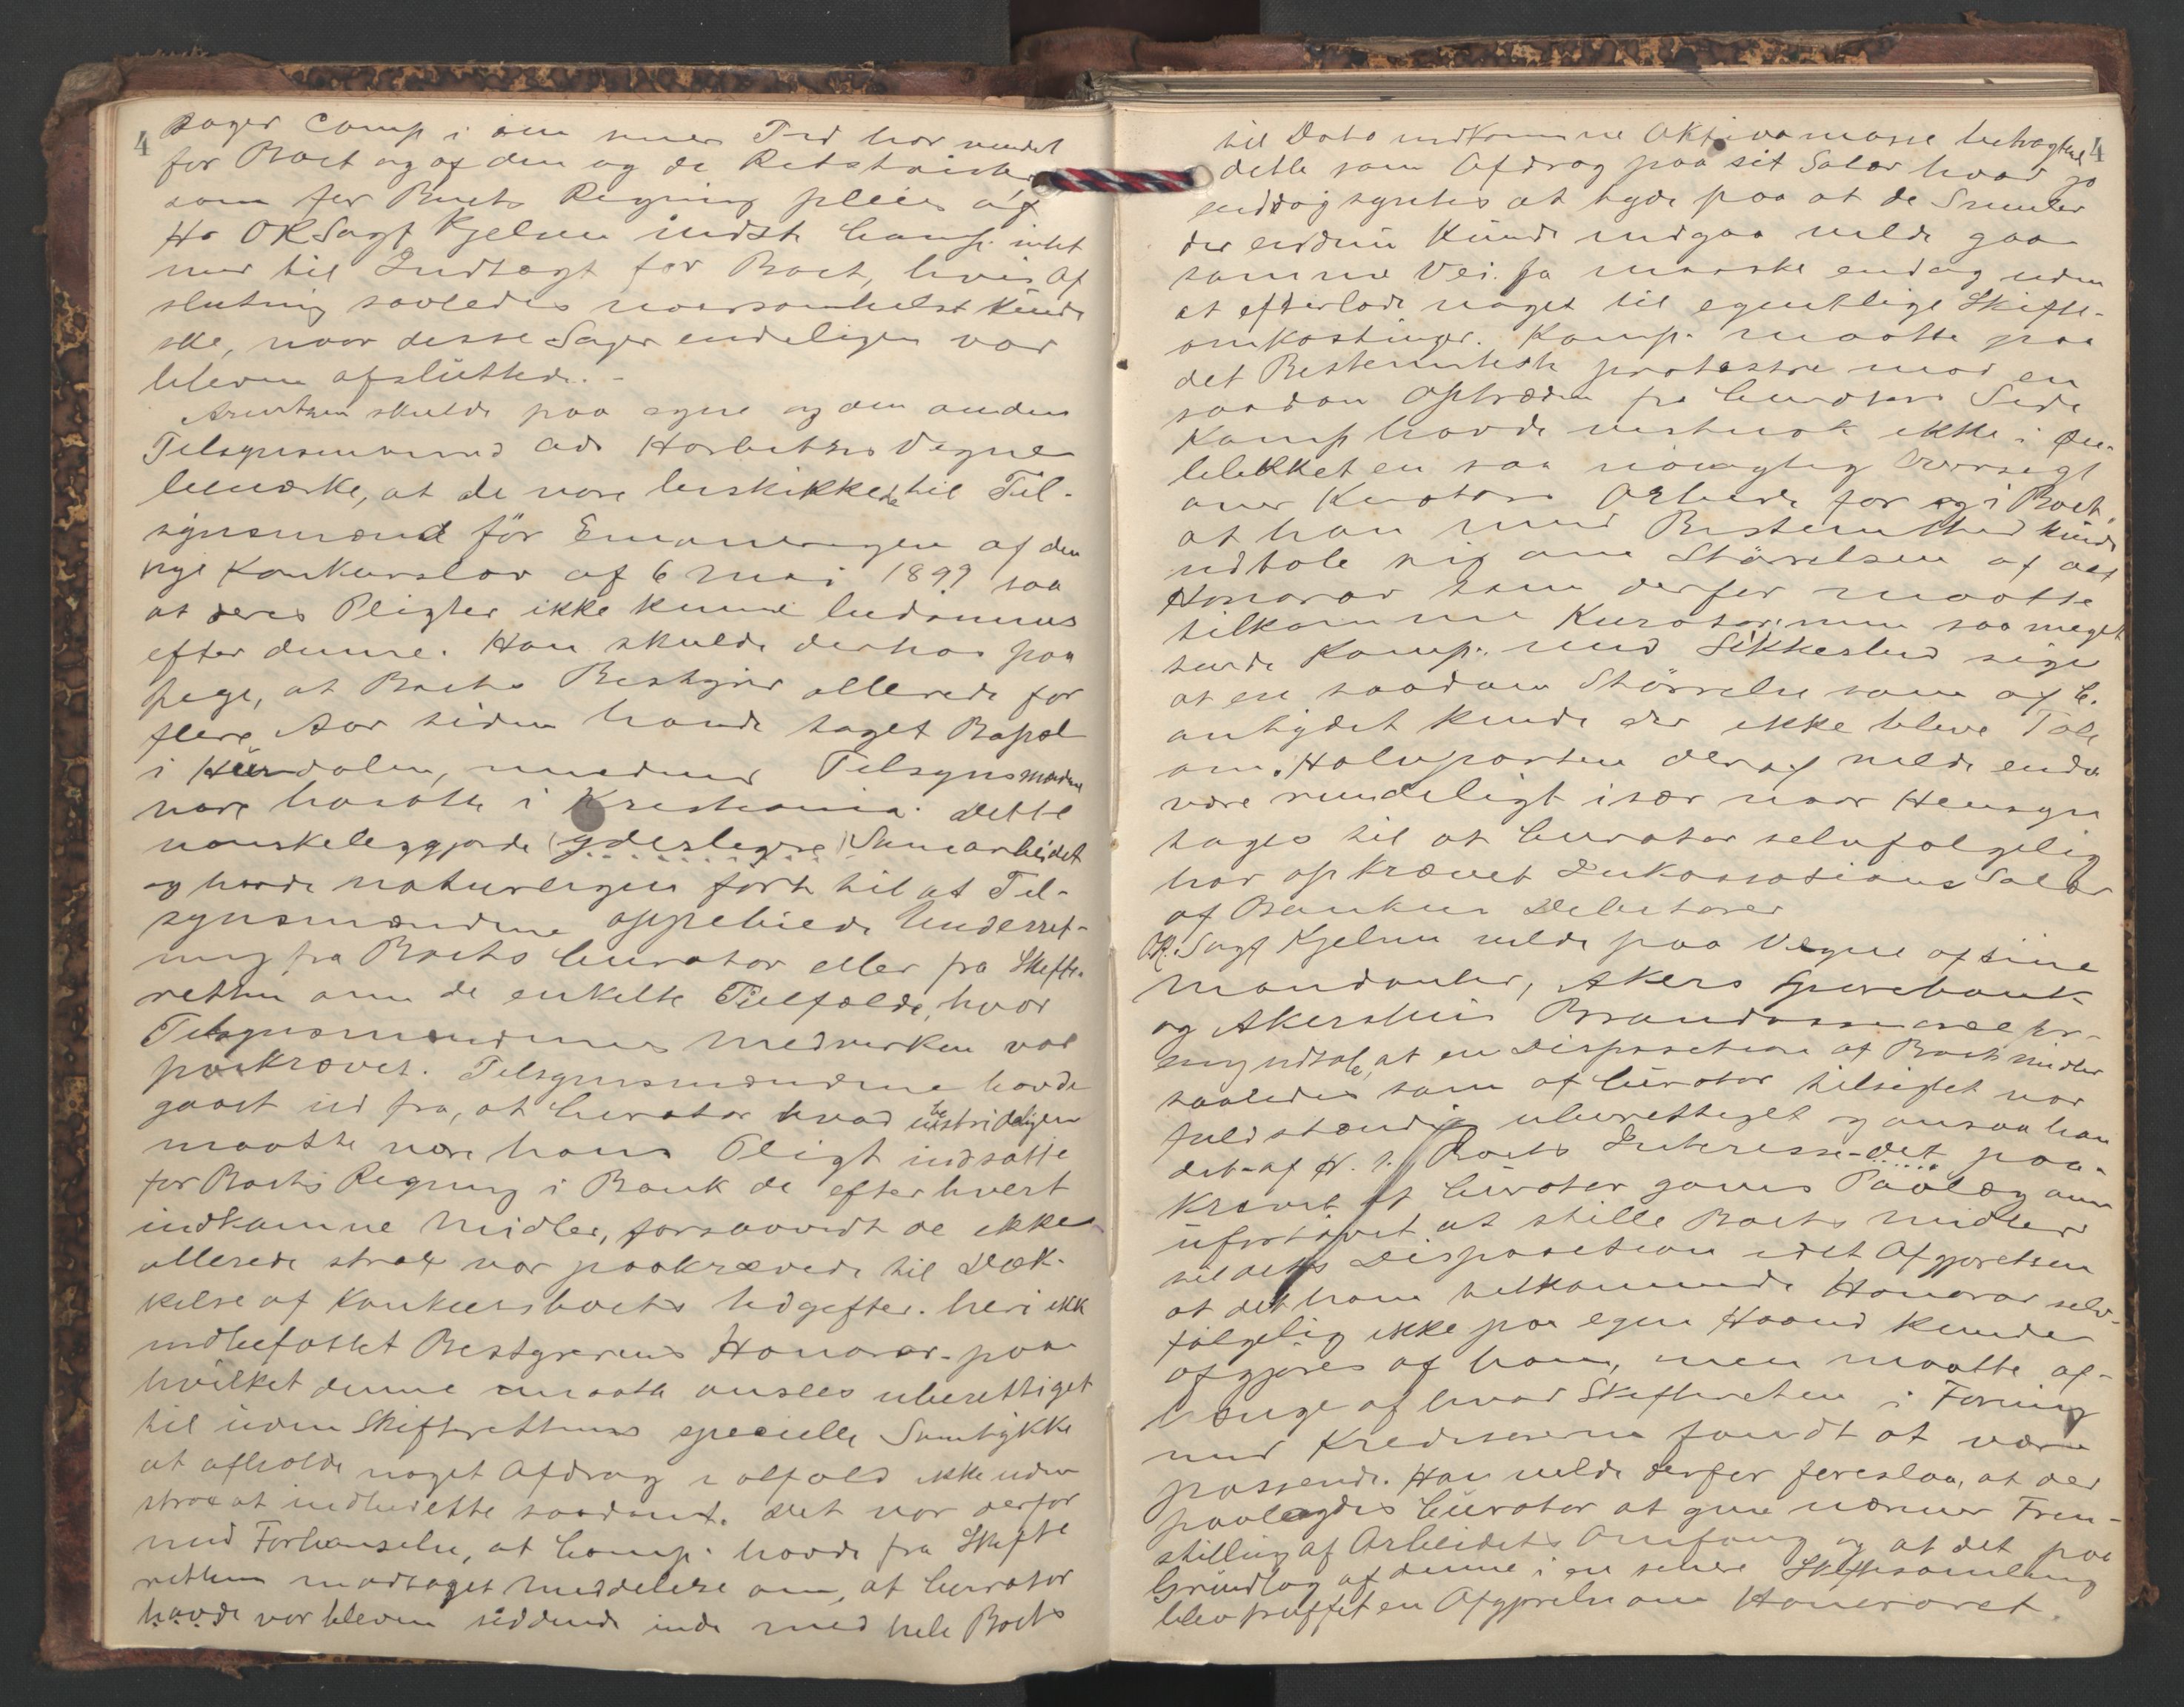 4
Sager Comp i sin mer Tid har vundet
for Boet og af den og de Retstrister,
som for Boets Regning pleies af
Hr OKSagf Kjelsen indst Comp. intet
mer til Indtægt for Boet, hvis Af
slutning saaledes naarsomhelst kunde
ske, naar disse Sager endeligen var
bleven afsluttede. -
Arentzen skulde paa egne og den anden
Tilsynsmand Adv Horbitzes Vegne
bemærke, at de vare beskikkede til Til-
synsmænd før Emaneringen af den
nye Konkurslov af 6 Mai 1899 saa
at deres Pligter ikke kunne bedømmes
efter denne. Han skulde derhos paa
pege, at Boets Bestyrer allerede for
flere Aar siden havde taget Bopæl
i Hurdalen, medens Tilsynsmændene
vare bosatte i Kristiania. Dette
vanskeliggjorde (yderligere) Samarbeidet
og havde naturligen ført til at Til-
synsmændene oppebiede Underret-
ning fra Boets Curator eller fra Skifte-
retten om de enkelte Tilfælde, hvor
Tilsynsmændenes Medvirken var
paakrævet. Tilsynsmændene havde
gaaet ud fra, at Curator hvad ubestrideligen
maatte være hans Pligt indsatte
for Boets Regning i Bank de efterhvert
indkomne Midler, forsaavidt de ikke
allerede strax var paakrævede til Dæk-
kelse af Konkursboets Udgifter. heri ikke
indbefattet Bestyrerens Honorar - paa
hvilket denne maatte ansees uberettiget
til uden Skifterettens specielle Samtykke
at afholde noget Afdrag i alfald ikke uden
strax at indberette saadant. Det var derfor
med Forbauselse, at Comp. havde fra Skifte
retten modtaget Meddelelse om, at Curator
havde var bleven siddende inde med hele Boets
4
til Dato indkomne Aktivamasse betragtende
dette som Afdrag paa sit Salær hvad jo
endog syntes at tyde paa at de Smuler
der endnu kunde indgaa vilde gaa
samme Vei. Ja maaske endog uden
at efterlade noget til egentlige Skifte-
omkostninger. Komp. maatte paa
det Bestemteste protestere mod en
saadan Optræden fra Curators Side
Komp havde vistnok ikke i Øie-
blikket en saa nøiagtig Oversigt
over Kurators Arbeide for og i Boet,
at han med Bestemthed kunde
udtale sig om Størrelsen af det
Honorar som derfor maatte
tilkomme Kurator, men saa meget
turde Komp. med Sikkerhed sige
at en saadan Størrelse som af C.
antydet kunde der ikke blive Tale
om. Halvparten deraf vilde endda
være rundeligt især naar Hensyn
tages til at Curator selvfølgelig
har opkrævet Inkassationssalær
af Bankens Debitorer
OK. Sagf Kjelsen vilde paa Vegne af sine
Mandanter, Akers Sparebank
og Akershus Brandassurancefor-
ening udtale, at en Disposition af Boets Midler
saaledes som af Curator tilsigtet var
fuldstændig uberettiget og ansaa han
det af H. t. Boets Interesse - det paa-
krævet at Curator gaves Paalæg om
ufortøvet at stille Boets Midler
til dets Disposition idet Afgjørelsen
at det ham tilkommende Honorar selv-
følgelig ikke paa egen Haand kunde
afgjøres af ham, men maatte af-
hænge af hvad Skifteretten i Forening
med Kreditorerne fandt at være
passende. Han vilde derfor foreslaa, at der
paalagdes Curator at give nærmere Frem-
stilling af Arbeidets Omfang og at det paa
Grundlag af denne i en senere Skiftesamling
blev truffet en Afgjørelse om Honoraret.